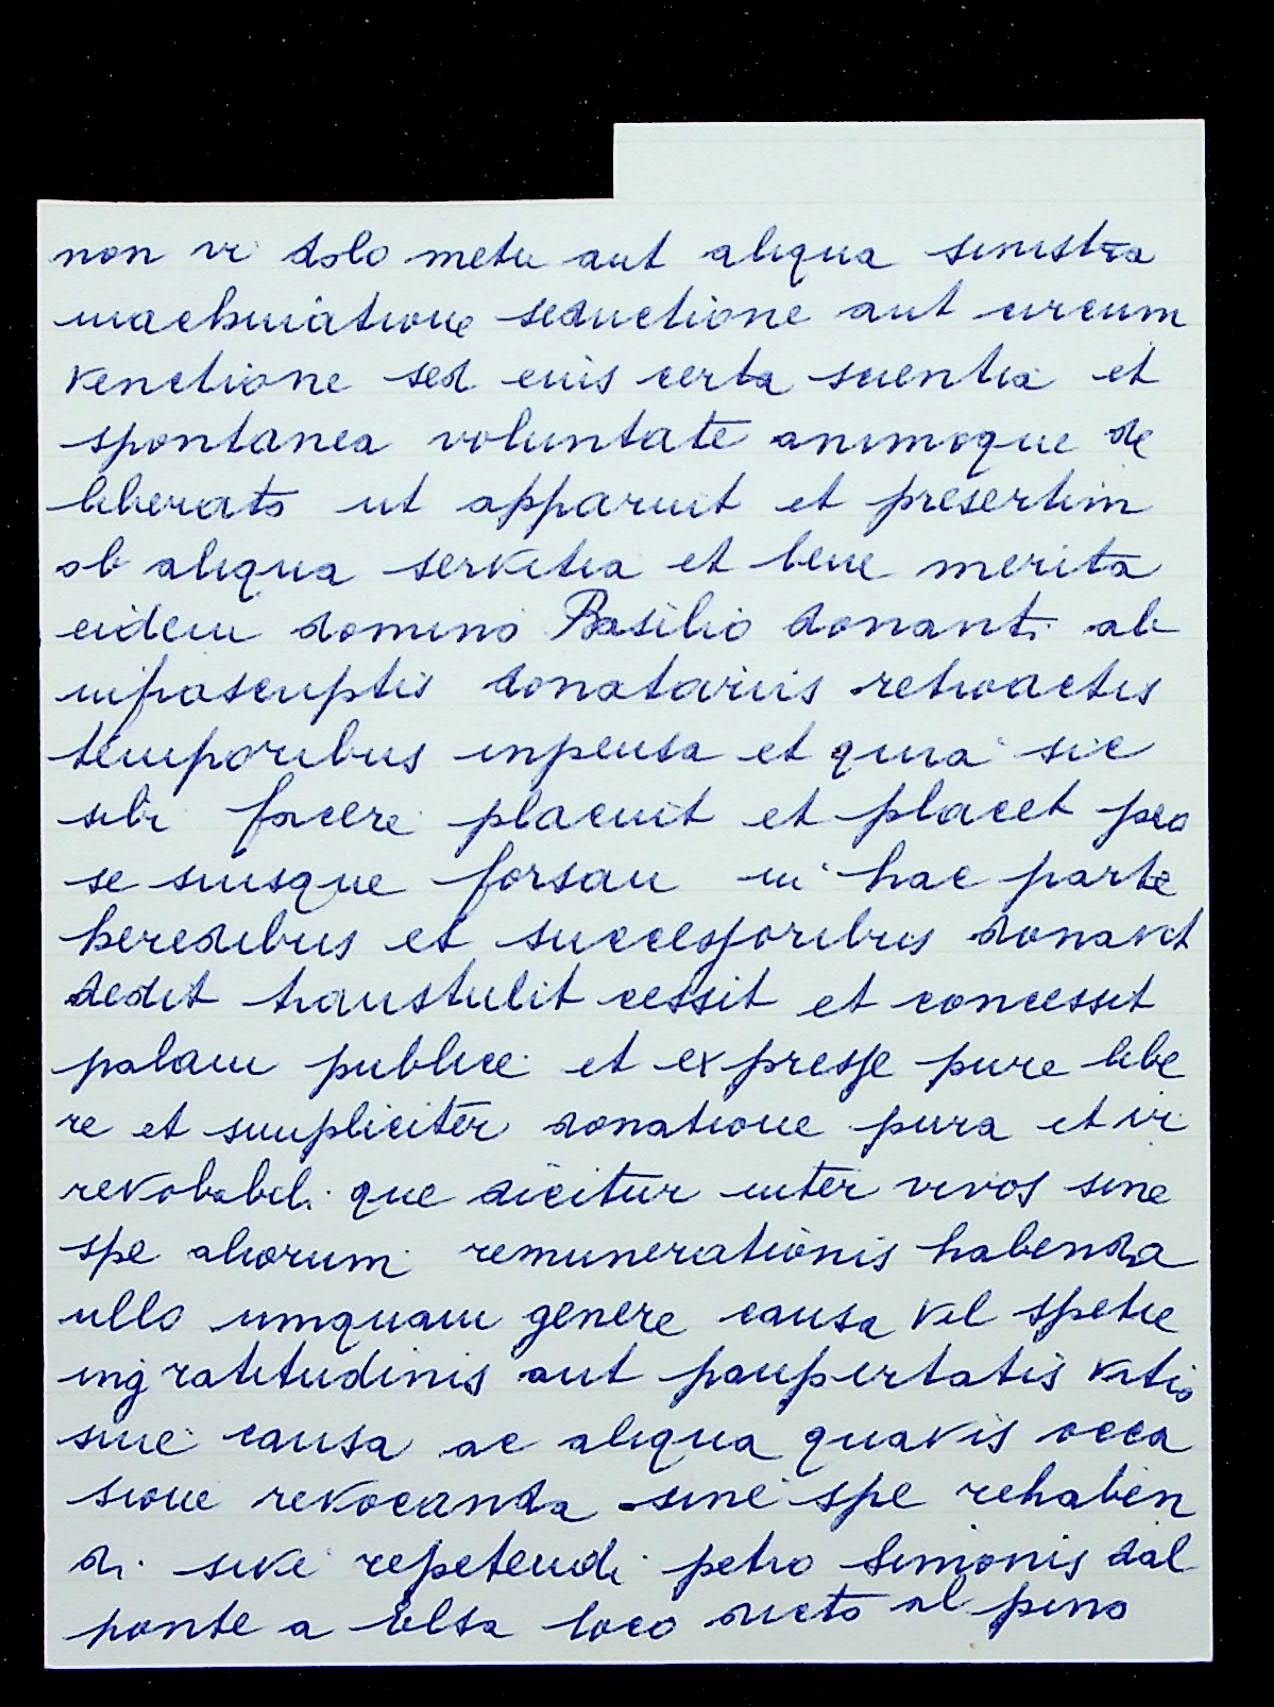 non vi dolo metu aut aliqua sinistra
machinatione seductione aut circum
venctione sed eius certa scientia et
spontanea voluntate animoque de
liberato ut apparuit et presertim
ob aliqua servitia et bene merita
eidem domino Basilio donanti ab
infrascriptis donatariis retroactis
temporibus inpensa et quia sic
sibi facere placuit et placet pro
se suisque forsan in hac parte
heredibus et successoribus donavit
dedit transtulit cessit et concessit
palam publice et expresse pure libe
re et simpliciter donatione pura et ir
revobabili que dicitur inter vivos sine
spe aliorum remunerationis habenda
ullo umquam genere causa vel spetie
ingratitudinis aut paupertatis vitio
sine causa ac aliqua quavis occa
sione revocanda sine spe rehaben
di sive repetendi petro Simonis dal
ponte a Elsa loco dicto al pino